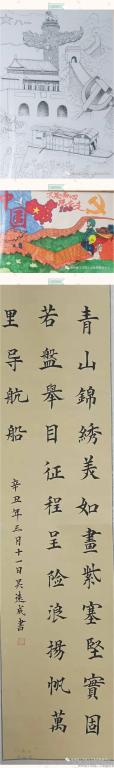 中国
青山錦綉美如畫紫塞堅實固
若盤舉目征程呈险浪揚帆萬
里导航船
辛丑年三月十一日吴远成書